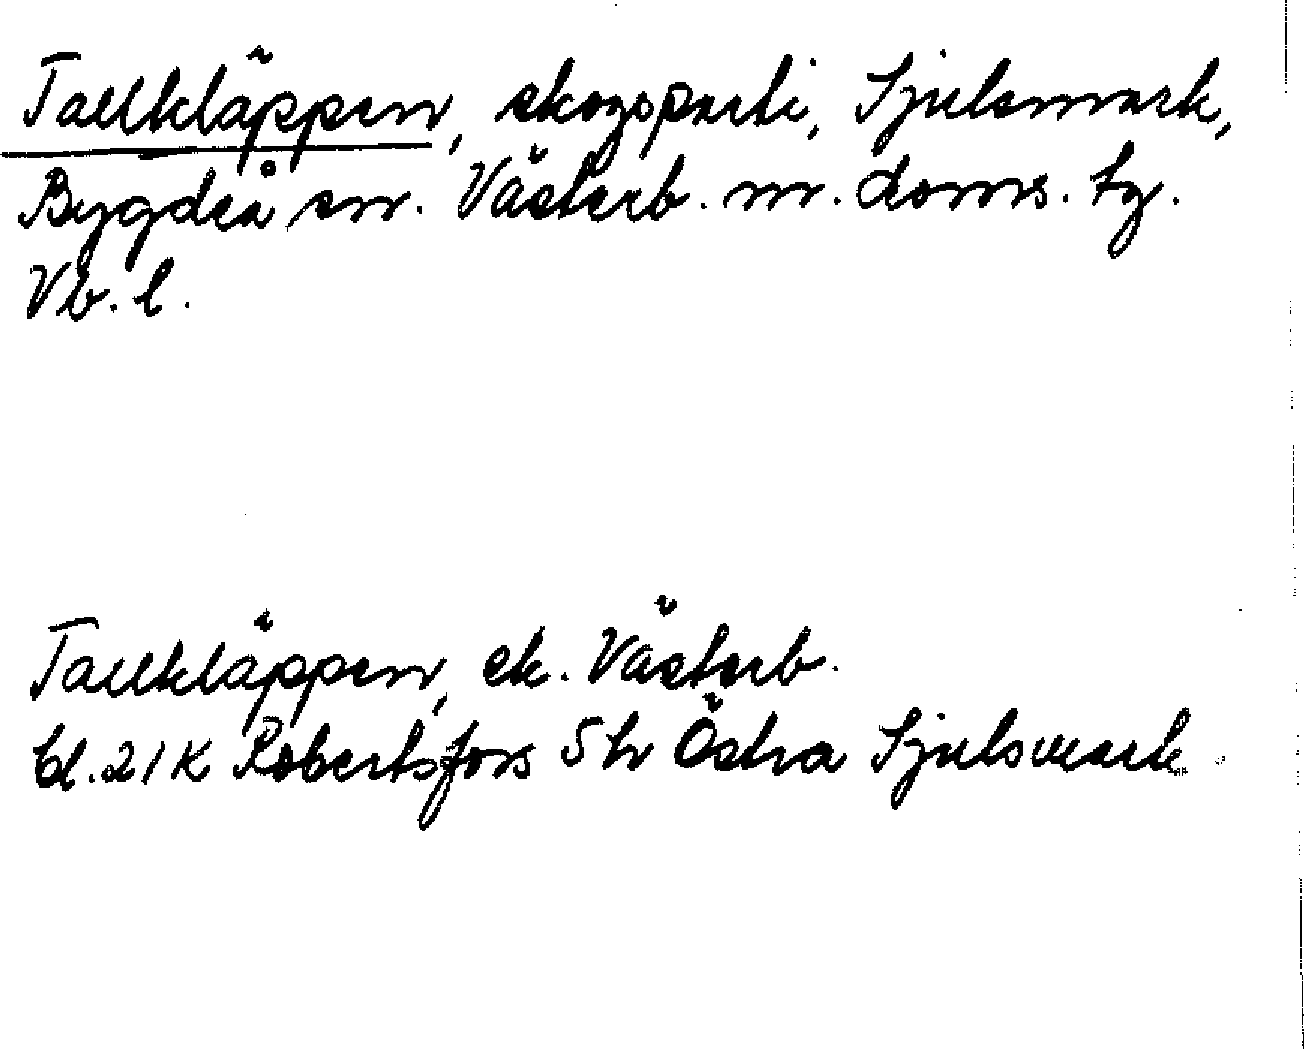 Tallkläppen, skogsparti, Sjulsmark,
Bygdeå sn. Västerb. n. doms. tg.
Vb. l.
Tallkläppen, ek. Västerb.
bl. 21K Robertsfors 5h Östra Sjulsmark.